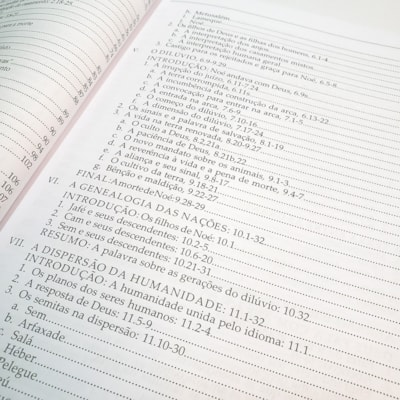 2.18-25
89
85
86
90
94
98
102
102
106
106
107
h. Metusalém
i. Lameque
j. Noé
2. Os filhos de Deus e as filhos dos homens, 6.1-4
a. A interpretação dos anjos
b. A interpretação dos casamentos mistos
3. Castigo para os rejeitados e graça para Noé, 6.5-8
V. O DILÚVIO: 6.9-9.29
INTRODUÇÃO: Noé andava com Deus, 6.9b
1. A irrupção do juízo, 6.11-7.24
a. A terra corrompida, 6.11-12
b. A incumbência da construção da arca, 6.13-22
c. A convocação para entrar na arca, 7.1-5
d. A entrada na arca, 7.6-9
e. O começo do dilúvio, 7.10-16
f. A dimensão do dilúvio, 7.17-24
2. Os sinais e a palavra de salvação, 8.1-19
3. A vida na terra renovada, 8.20-9.27
a. A paciência de Deus, 8.21a
b. O culto a Deus, 8.2,21a
c. O novo mandato sobre os animais, 9.1-3
d. A reverência à vida e a pena de morte, 9.4-7
e. A aliança e seu sinal, 9.8-17
f. O cultivo da terra, 9.18-21
g. Bênção e maldição, 9.22-27
FINAL: A morte de Noé: 9.28-29
VI. A GENEALOGIA DAS NAÇÕES: 10.1-32
INTRODUÇÃO: Os filhos de Noé: 10.1
1. Jafé e seus descendentes: 10.2-5
2. Cam e seus descendentes: 10.6-20
3. Sem e seus descendentes: 10.21-31
RESUMO: A palavra sobre as gerações do dilúvio: 10.32
VII. A DISPERSÃO DA HUMANIDADE: 11.1-32
INTRODUÇÃO: A humanidade unida pelo idioma: 11.1
1. Os planos dos seres humanos: 11.2-4
2. A resposta de Deus: 11.5-9
3. Os semitas na dispersão: 11.10-30
a. Sem
b. Arfaxade
c. Salá
Héber
Pelegue